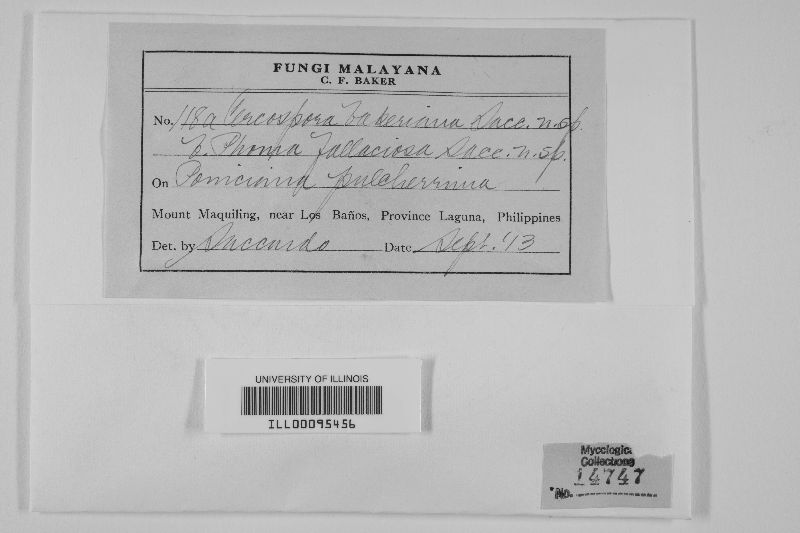 FUNGI MALAYANA
C. F. BAKER
No. 118a Cercospora bakeriana Sacc. n. sp.
b. Phoma fallaciosa Sacc. n. sp.
On Poinciana pulcherrima
Mount Maquiling, near Los Baños, Province Laguna, Philippines
Det. by Saccardo Date Sept. '13
UNIVERSITY OF ILLINOIS
ILL00095456
Mycologica
Collections
No. 14747